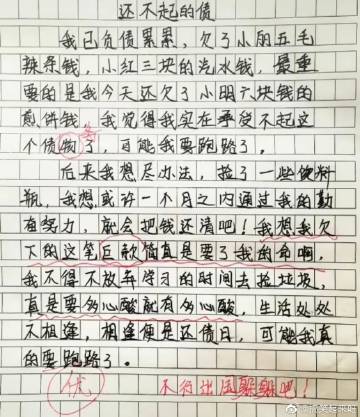 还不起的债
我已负债累累，欠了小丽五毛
辣条钱，小红三块的汽水钱，最重
要的是我今天还欠了小明六块钱的
煎饼钱，我觉得我实在承受不起这
个债务了，可能我要跑路了。
后来我想尽办法，捡了一些饮料
瓶，我想或许一个月之内通过我的勤
奋努力，就会把钱还清吧！我想我欠
下的这笔巨款简直是要了我的命啊，
我不得不放弃学习的时间去捡垃圾，
真是要多心酸就有多心酸，生活处处
不相逢，相逢便是还债日，可能我真
的要跑路了。
优 不行出国躲躲吧！